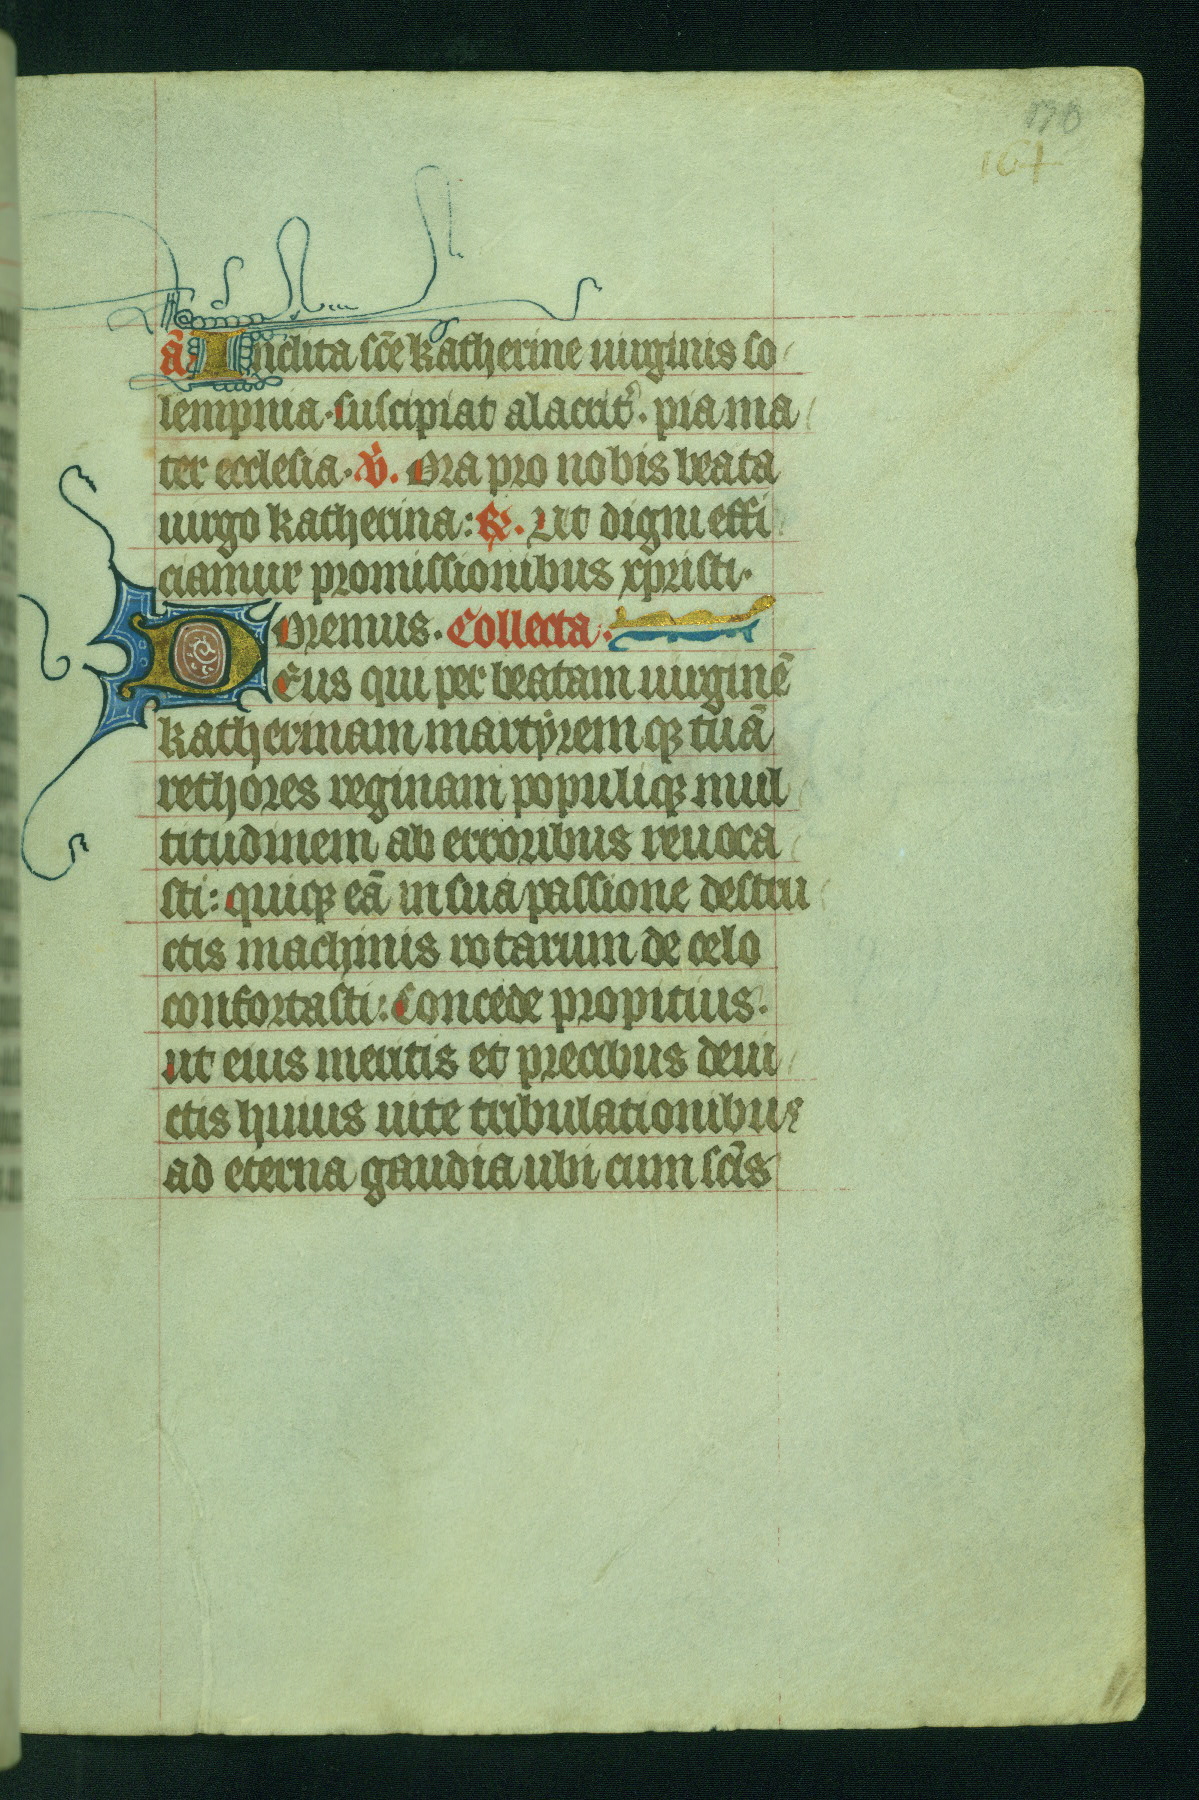 167
ā. Inclita sc̄e katherine uirginis so
lempnia. suscipiat alacrit᷒. pia ma
ter ecclesia. V̇. Ora pro nobis beata
uirgo katherina: R̷. Ut digni effi
ciamur promissionibus xpristi.
Oremus. Collecta.
DEus qui per beatam uirginē
katherinam martẏrem qꝫ tuā
rethores reginam populiqꝫ mul
titudinem ab erroribus reuoca
sti: quiqꝫ eā in sua passione destru
ctis machinis rotarum de celo
confortasti: Concede propitius.
ut eius meritis et precibus deui
ctis huius uite tribulationibus
ad eterna gaudia ubi cum sc̄is